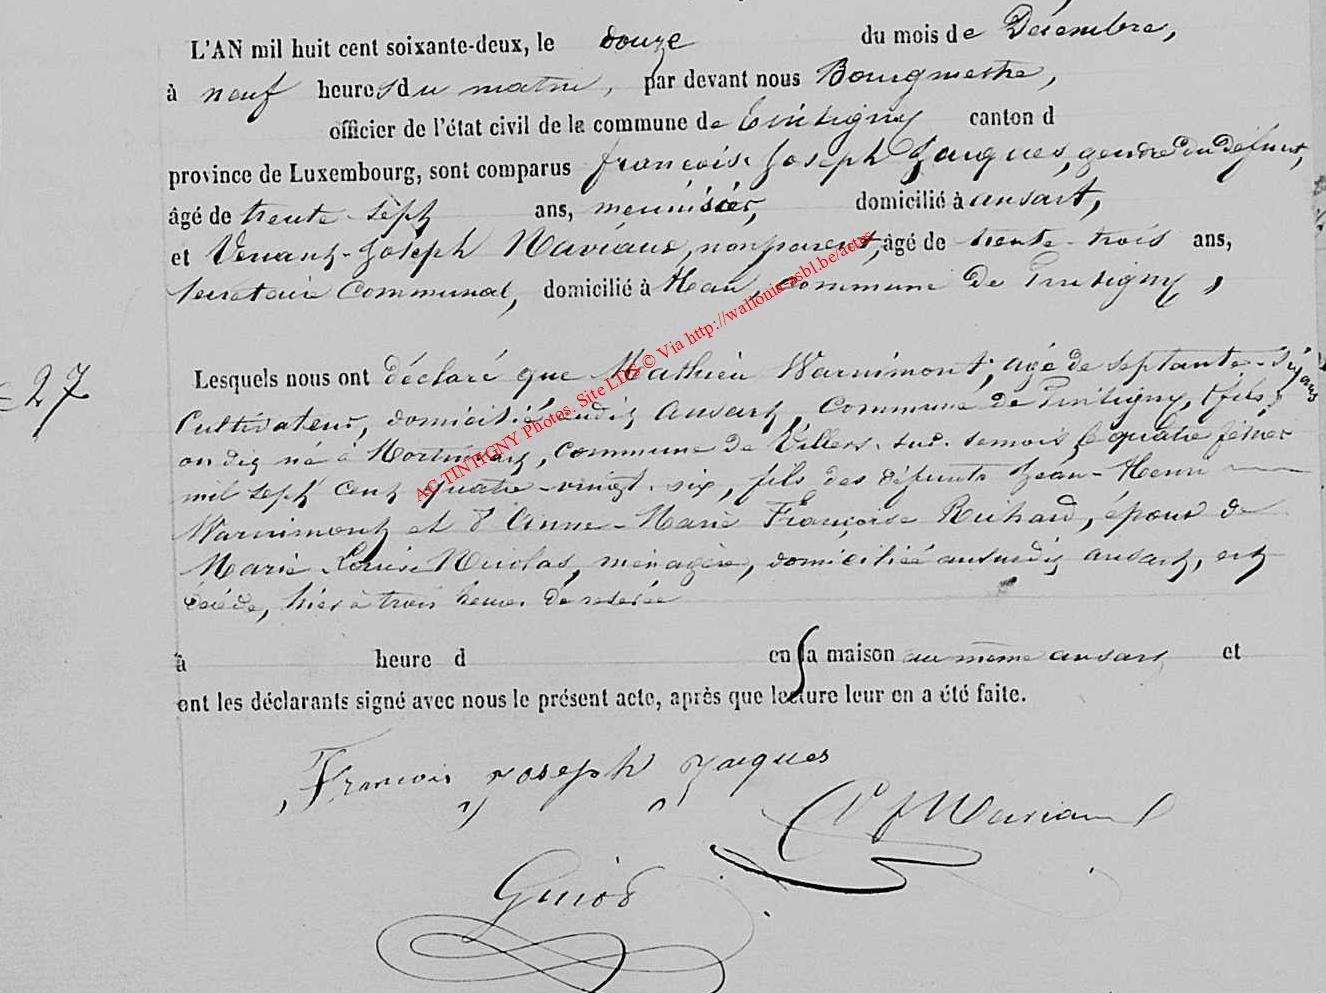 L'AN mil huit cent soixante-deux, le douze du mois de Décembre,
à neuf heures du matin, par devant nous Bourgmestre,
officier de l'état civil de la commune de Tintigny canton d
province de Luxembourg, sont comparus François Joseph Jacques, gendre du défunt,
âgé de trente-sept ans, menuisier, domicilié à ansart,
et Venant-Joseph Maviaux, non parent, âgé de trente-trois ans,
Secrétaire Communal, domicilié à Han, commune de Tintigny,
27
Lesquels nous ont déclaré que Mathieu Warnimont, agé de septante-six ans
Cultivateur, domicilié audit Ansart, Commune de Tintigny, (fils)
ondit né à Mortinsart, commune de Villers-sur-semois le quatre février
mil sept cent quatre-vingt-six, fils des défunts Jean-Henri
Warnimont et d'Anne-Marie Françoise Richard, époux de
Marie-Louise Nicolas, ménagère, domiciliée ausudit ansart, est
décédé, hier à trois heures de relevée
à heure d en la maison au même ansart et
ont les déclarants signé avec nous le présent acte, après que lecture leur en a été faite.
François Joseph Jacques
VJMaviaux
Guiot
AC TINTIGNY Photos. Site LDS © Via http://wallonia-asbl.be/actes